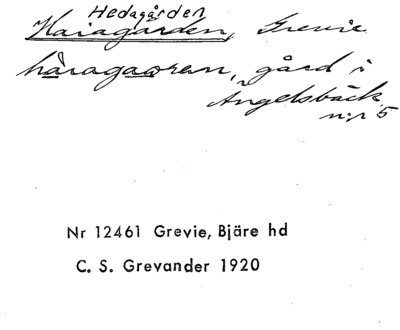 Hedagården
Haiagården, Grevie
håragaoren, gård i
Ängelsbäck
n:r 5
Nr 12461 Grevie, Bjäre hd
C. S. Grevander 1920